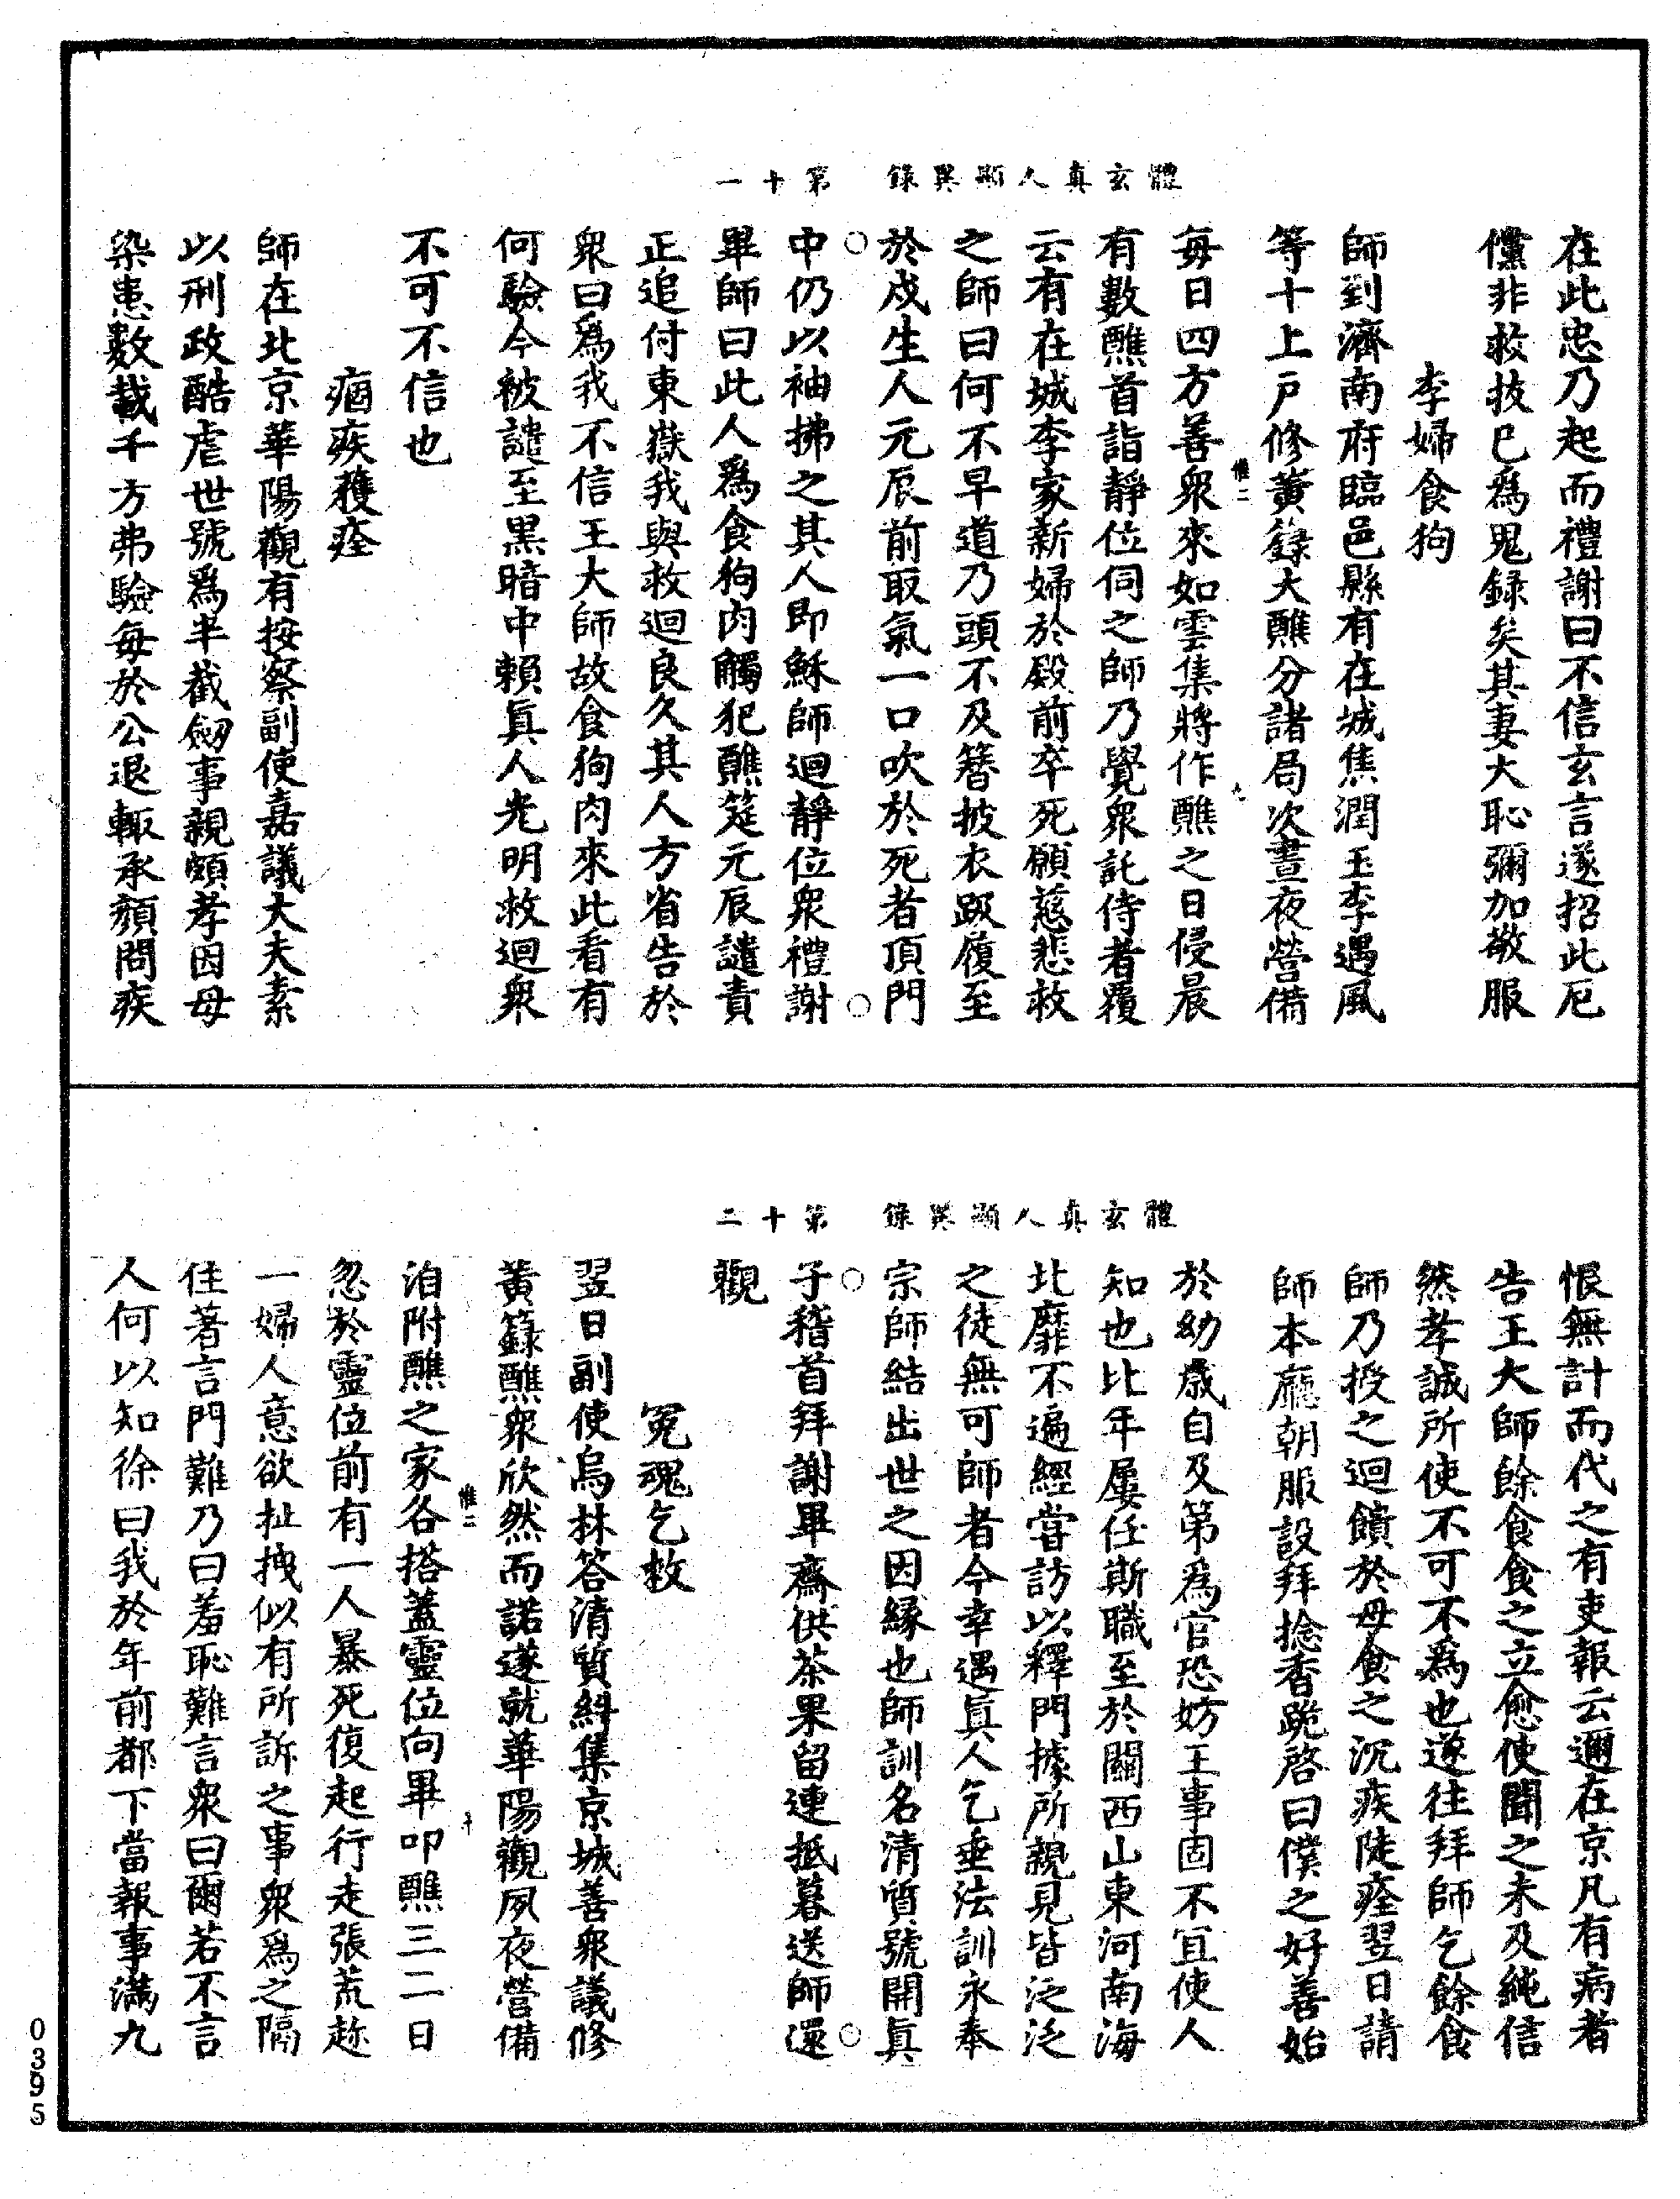 體玄真人顯異錄　第十一
在此忠乃起而禮謝曰不信玄言遂招此厄
儻非救拔已爲鬼録矣其妻大恥彌加敬服
李婦食狗
師到濟南府臨邑縣有在城焦潤玉李遇風
等十上戶修黃籙大醮分諸局次晝夜營備
惟二
九
每日四方善衆來如雲集將作醮之日侵晨
有數醮首詣靜位伺之師乃覺衆託侍者覆
云有在城李家新婦於殿前卒死願慈悲救
之師曰何不早道乃頭不及簪披衣趿履至
於戍生人元辰前取氣一口吹於死者頂門
中仍以袖拂之其人即穌師迴靜位衆禮謝
畢師曰此人爲食狗肉觸犯醮筵元辰譴責
正追付東嶽我與救迴良久其人方省告於
衆曰爲我不信王大師故食狗肉來此看有
何驗今被譴至黑暗中賴眞人光明救迴衆
不可不信也
痼疾獲痊
師在北京華陽觀有按察副使嘉議大夫素
以刑政酷虐世號爲半截劒事親頗孝因母
染患數載千方弗驗每於公退輙承顏問疾
體玄真人顯異錄　第十二
恨無計而代之有吏報云邇在京凡有病者
告王大師餘食食之立愈使聞之未及純信
然孝誠所使不可不爲也遂往拜師乞餘食
師乃授之迴饋於母食之沉疾陡痊翌日請
師本廳朝服設拜捻香跪啓曰僕之好善始
於幼歲自及第爲官恐妨王事固不宜使人
知也比年屢任斯職至於關西山東河南海
北靡不遍經嘗訪以釋門據所親見皆泛泛
之徒無可師者今幸遇眞人乞垂法訓永奉
宗師結出世之因緣也師訓名清質號開眞
子稽首拜謝畢齋供茶果留連抵暮送師還
觀
冤魂乞救
翌日副使烏林答清質糾集京城善衆議修
黃籙醮衆欣然而諾遂就華陽觀夙夜營備
惟二
十
洎附醮之家各搭蓋靈位向畢叩醮三二日
忽於靈位前有一人暴死復起行走張荒趂
一婦人意欲扯拽似有所訴之事衆爲之隔
住著言門難乃曰羞恥難言衆曰爾若不言
人何以知徐曰我於年前都下當報事滿九
0395